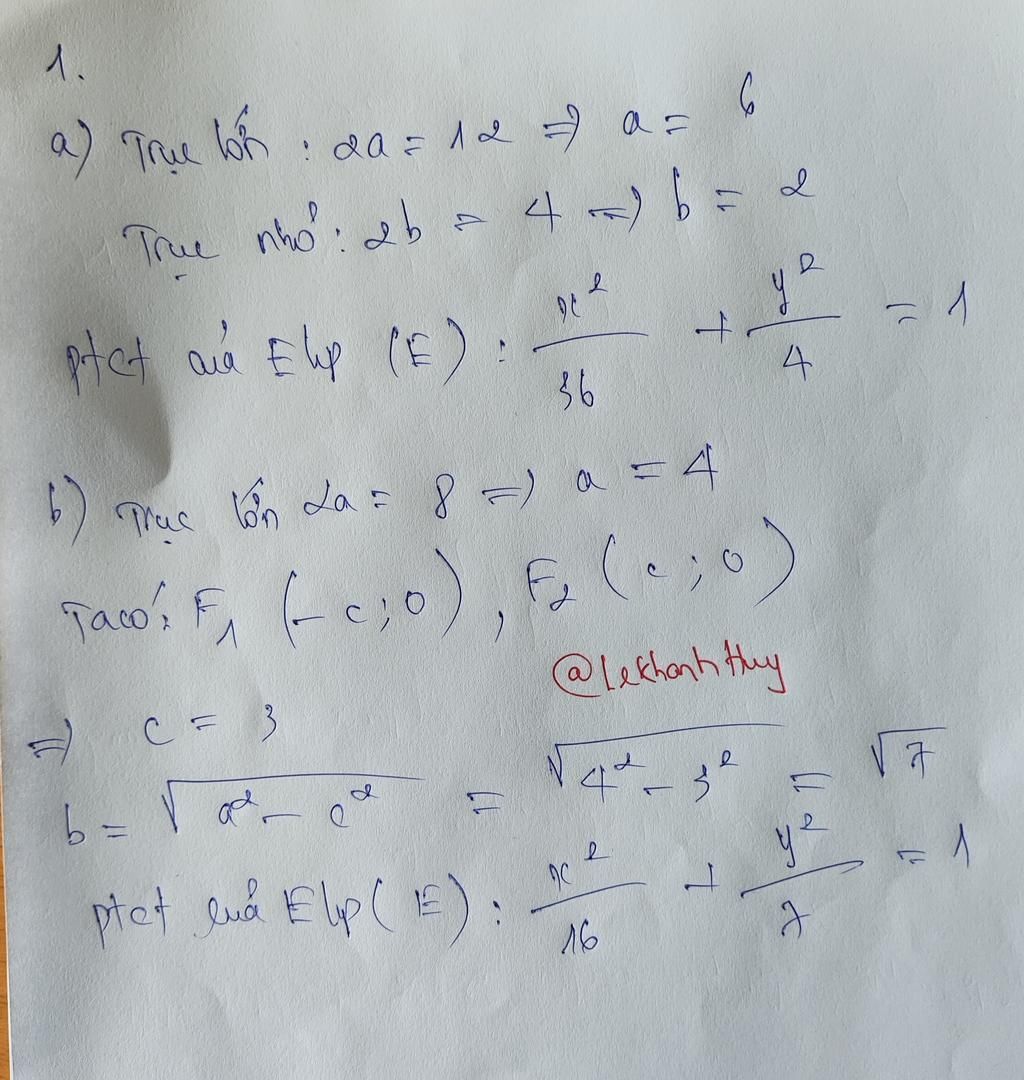 1.
a) Trục lớn : 2a = 12 => a = 6
Trục nhỏ : 2b = 4 => b = 2
ptct của Elip (E) : x²/36 + y²/4 = 1
b) Trục lớn 2a = 8 => a = 4
Ta có : F₁ (-c ; 0) , F₂ (c ; 0)
@lekhanhthuy
=> c = 3
b = √(a² - c²) = √(4² - 3²) = √7
ptct của Elip (E) : x²/16 + y²/7 = 1